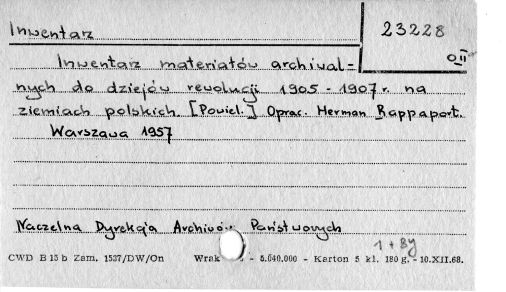 Inwentarz
23228
Inwentarz materiałów archiwal=
nych do dziejów rewolucji 1905-1907 r. na
ziemiach polskich. [Powiel.] Oprac. Herman Rappaport.
Warszawa 1957
Naczelna Dyrekcja Archiwów Państwowych
CWD B 15 b Zam. 1537/DW/On Wrak - 5.040.000 - Karton 5 kl. 180 g. - 10.XII.68.